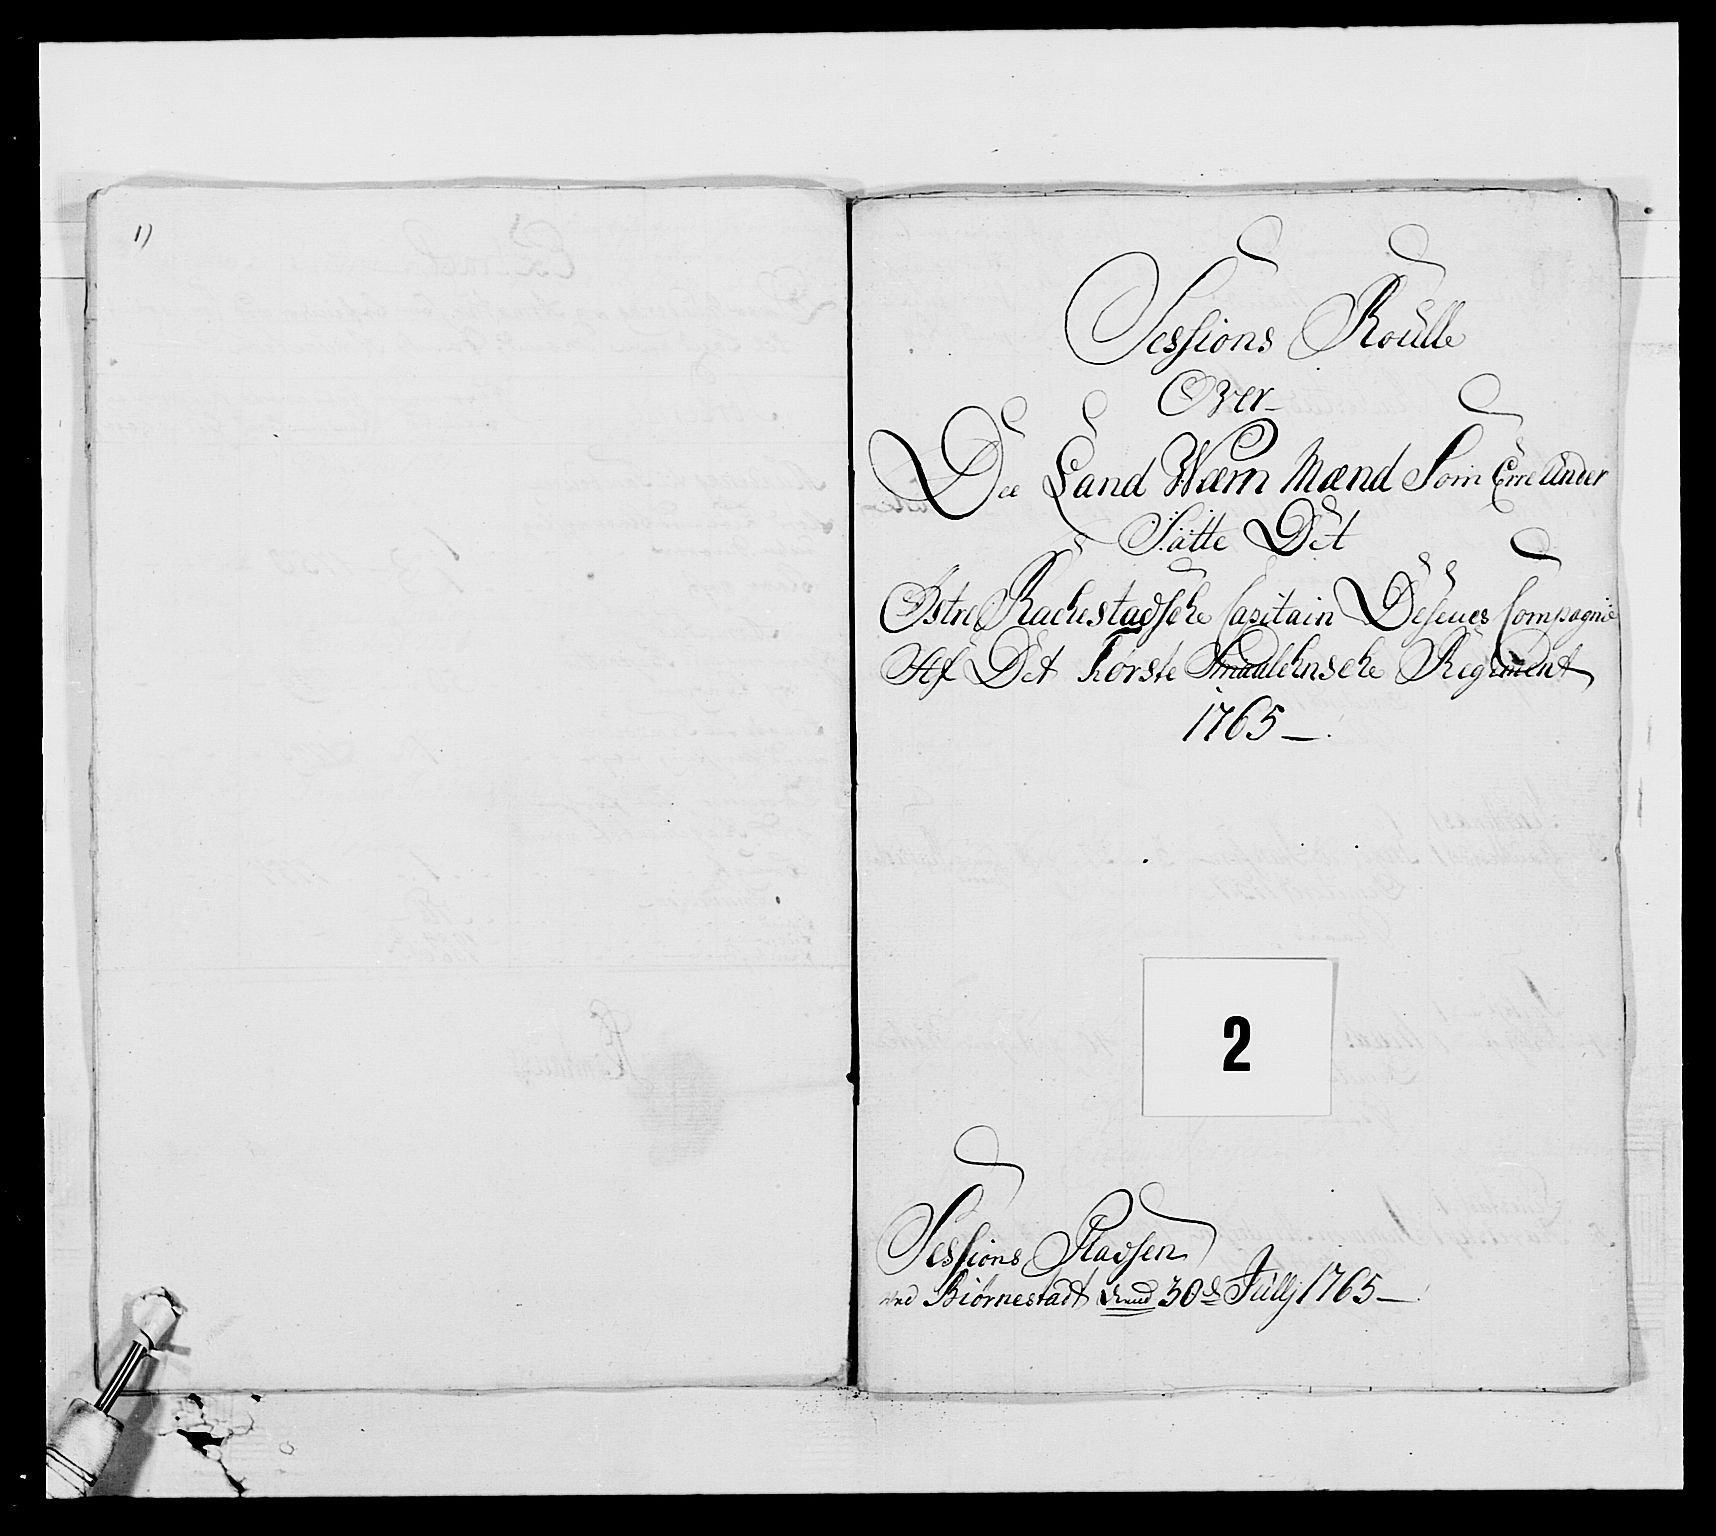 1)
Sessions Roulle
Over
Dee Land Wærn Mænd Som Erre Under
Satte Det
Østre Rackestadsche Capitain Deseues Compagnie
Af Det Første Smaalehnsche Regiment
1765
2
Sessions Pladsen
ved Biørnestadt 30 Julij 1765